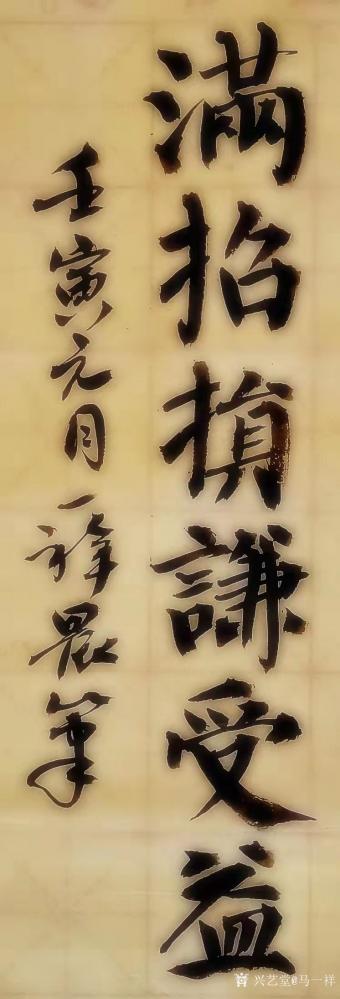 滿招損謙受益
壬寅元月一祥晨筆
兴艺堂@马一祥